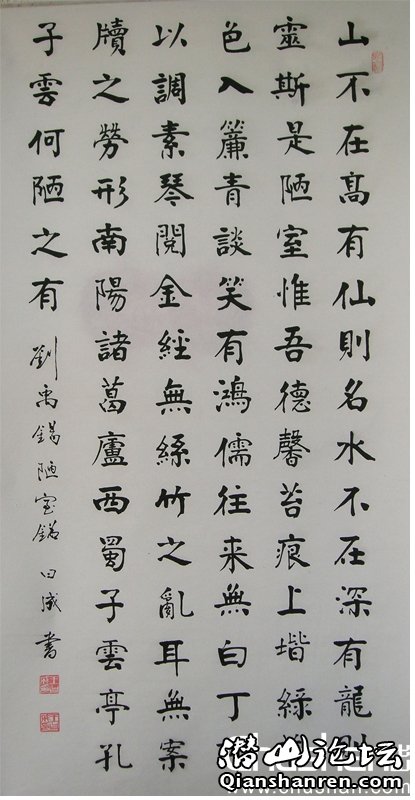 山不在高有仙則名水不在深有龍則
靈斯是陋室惟吾德馨苔痕上堦綠
色入簾青談笑有鴻儒往来無白丁
以調素琴閱金經無絲竹之亂耳無案
牘之勞形南陽諸葛廬西蜀子雲亭孔
子雲何陋之有
劉禹錫陋室銘 書
潜山论坛
Qianshanren.com